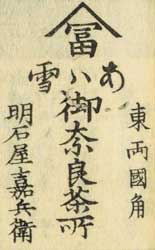 冨
あハ雪
東両國角
御奈良茶所
明石屋嘉兵衛